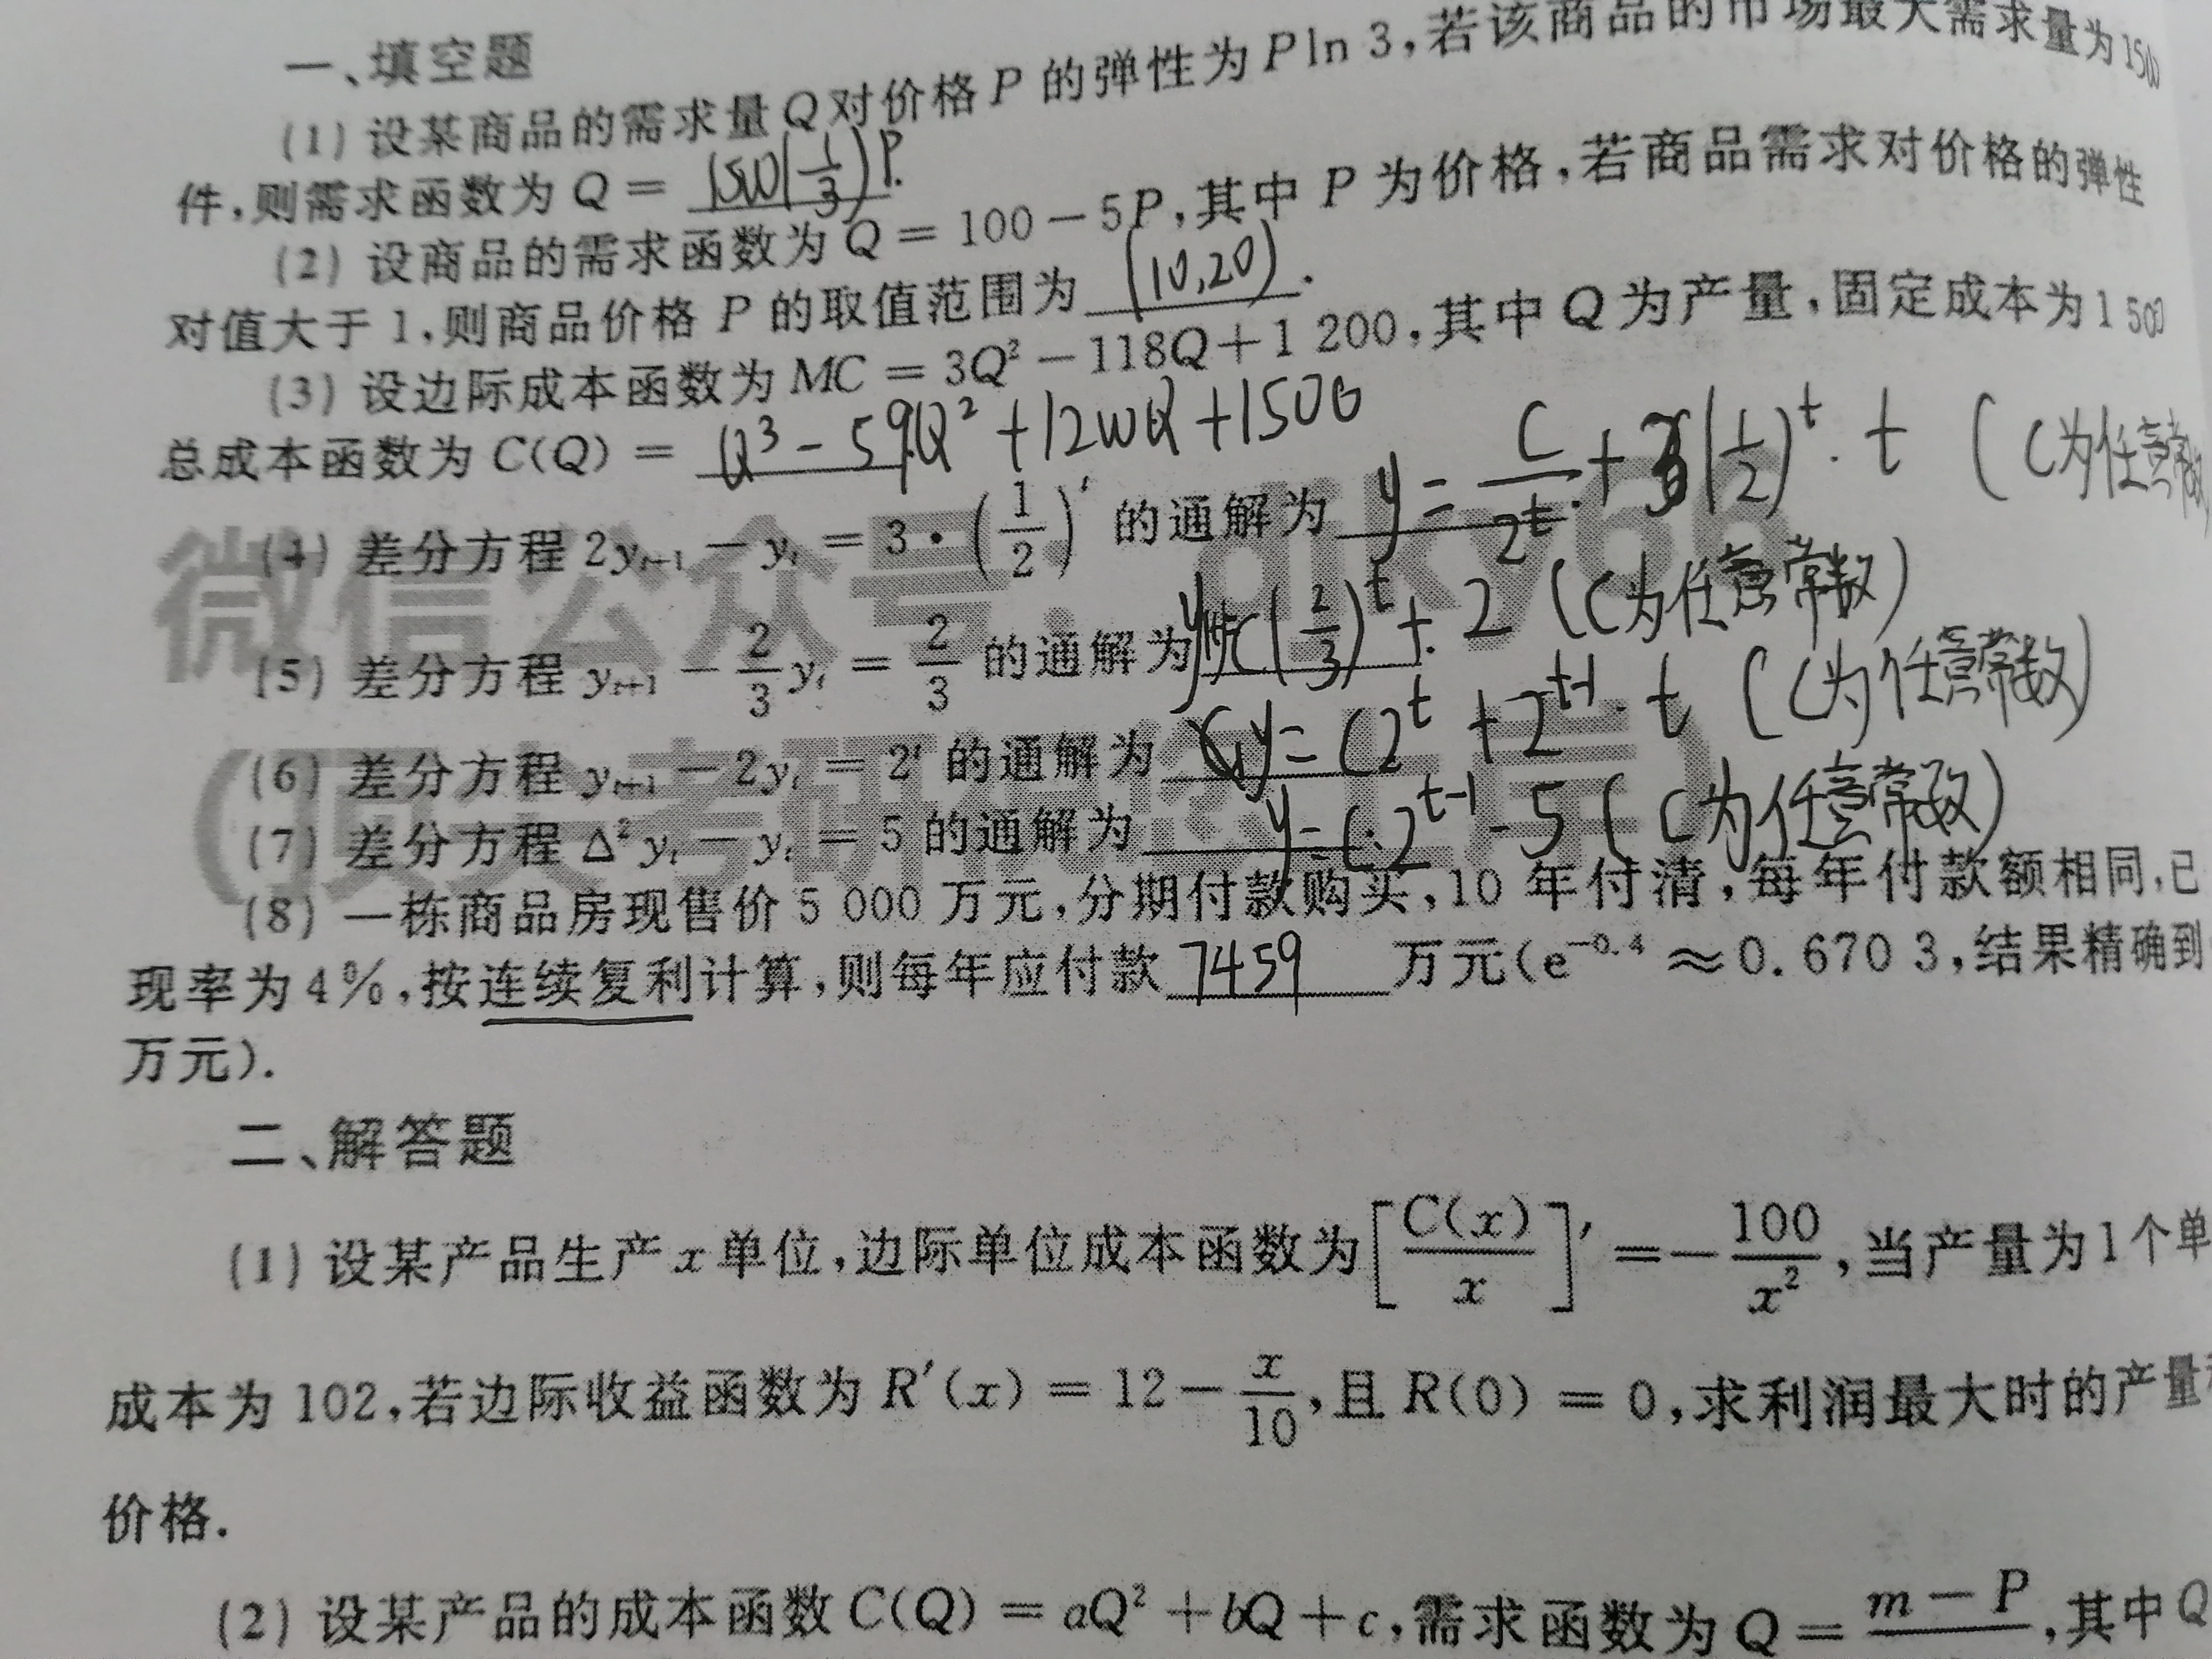 一、填空题
(1) 设某商品的需求量Q对价格P的弹性为Pln 3,若该商品的市场最大需求量为1500
件,则需求函数为 Q = 1500(1/3)^P.
(2) 设商品的需求函数为 Q = 100 - 5P,其中 P 为价格,若商品需求对价格的弹性
对值大于 1,则商品价格 P 的取值范围为 (10,20).
(3) 设边际成本函数为 MC = 3Q² - 118Q + 1 200,其中 Q 为产量,固定成本为 1 500
总成本函数为 C(Q) = Q³ - 59Q² + 1200Q + 1500
(4) 差分方程 2y_{t+1} - y_t = 3·(1/2)^t 的通解为 y = C/2^t + 3(1/2)^t · t (C为任意常数
(5) 差分方程 y_{t+1} - 2/3 y_t = 2/3 的通解为 C(2/3)^t + 2 (C为任意常数)
(6) 差分方程 y_{t+1} - 2y_t = 2^t 的通解为 y = C2^t + 2^{t-1}·t (C为任意常数)
(7) 差分方程 Δ²y_t - y_t = 5 的通解为 y = C·2^{t-1} - 5 (C为任意常数)
(8) 一栋商品房现售价 5 000 万元,分期付款购买,10 年付清,每年付款额相同,已
现率为 4%,按连续复利计算,则每年应付款 7459 万元(e^{-0.4} ≈ 0.670 3,结果精确到
万元).
微信公众号: djky66
(顶尖考研
二、解答题
(1) 设某产品生产 x 单位,边际单位成本函数为 [C(x)/x]' = -100/x²,当产量为1个单
成本为 102,若边际收益函数为 R'(x) = 12 - x/10,且 R(0) = 0,求利润最大时的产量
价格.
(2) 设某产品的成本函数 C(Q) = aQ² + bQ + c,需求函数为 Q = m - P ,其中 Q